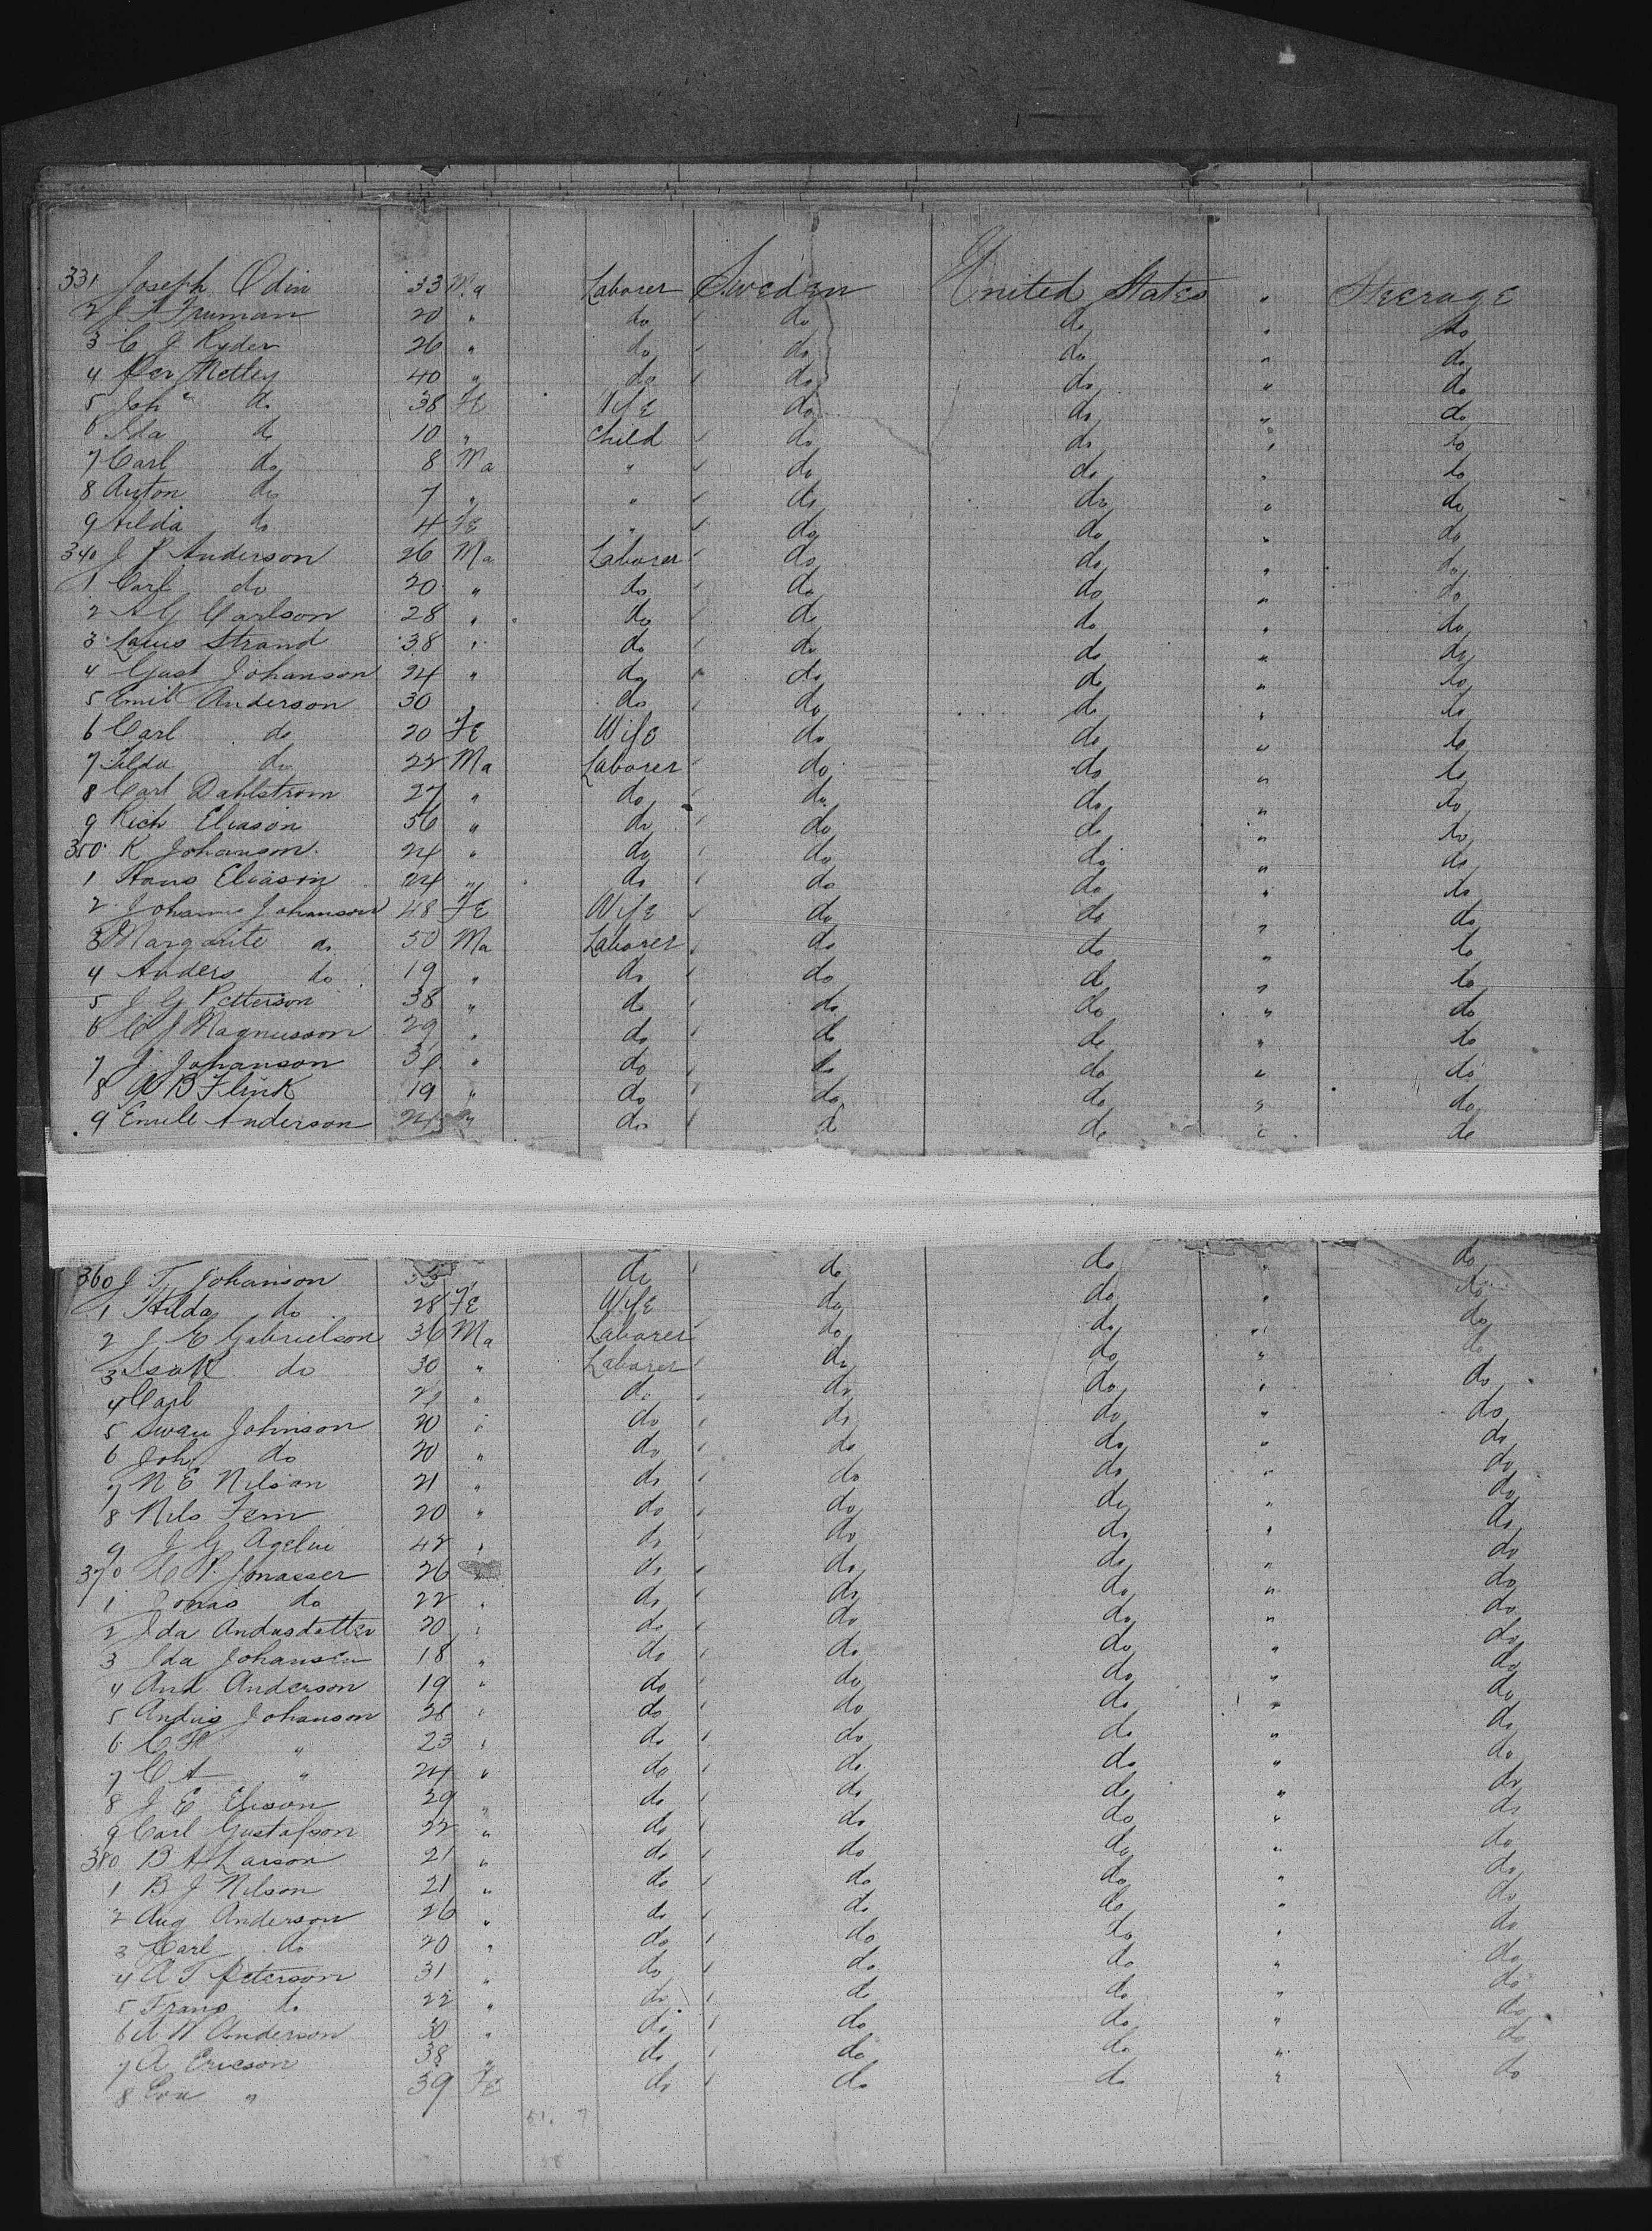 331 Joseph Odin 33 Ma Laborer Sweden United States " Steerage
2 J A Truman 20 " do do do " do
3 C J Ryder 26 " do do do " do
4 Per Mettey 40 " do do do " do
5 Joh do 38 FE Wife do do " do
6 Ida do 10 " Child do do " do
7 Carl do 8 Ma " do do " do
8 Anton do 7 " " do do " do
9 Hilda do 4 FE " do do " do
340 J P Anderson 26 Ma Laborer do do " do
1 Carl do 20 " do do do " do
2 A G Carlson 28 " do do do " do
3 Strand 38 " do do do " do
4 Gust Johanson 24 " do do do " do
5 Emil Anderson 30 " do do do " do
6 Carl do 20 FE Wife do do " do
7 Tilda do 22 Ma Laborer do do " do
8 Carl Dahlstrom 27 " do do do " do
9 Rich Eliason 36 " do do do " do
350 K Johanson 24 " do do do " do
1 Hans Eliason 24 " do do do " do
2 Johanson 48 FE Wife do do " do
3 Margarite do 50 Ma Laborer do do " do
4 Anders do 19 " do do do " do
5 J G Petterson 38 " do do do " do
6 C J Magnusson 29 " do do do " do
7 J Johanson " do do do " do
8 B Flink 19 " do do do " do
9 Emile Anderson 24 " do do do " do
360 J T Johanson " do do do " do
1 Hilda do 28 FE Wife do do " do
2 J E Gabrielson 36 Ma Laborer do do " do
3 Isak do 30 " Laborer do do " do
4 Carl " do do do " do
5 Swan Johnson 20 " do do do " do
6 Joh do 20 " do do do " do
7 N E Nilson 21 " do do do " do
8 Nils Fern 20 " do do do " do
9 J G Agelin 42 " do do do " do
370 C P Jonasser 26 do do do " do
1 Jonas do 22 " do do do " do
2 Ida Andusdotter 20 " do do do " do
3 Ida Johansen 18 " do do do " do
4 And. Anderson 19 " do do do " do
5 Andus Johanson 26 " do do do " do
6 C " 23 " do do do " do
7 C A " 24 " do do do " do
8 J E Elison 29 " do do do " do
9 Carl Gustafson 22 " do do do " do
380 B A Larson 21 " do do do " do
1 B J Nilson 21 " do do do " do
2 Aug Anderson 26 " do do do " do
3 Carl do 20 " do do do " do
4 A T Peterson 31 " do do do " do
5 Frans do 22 " do do do " do
6 A W Anderson 30 " do do do " do
7 A Ericson 38 " do do do " do
8 Eva " 39 FE do do do " do